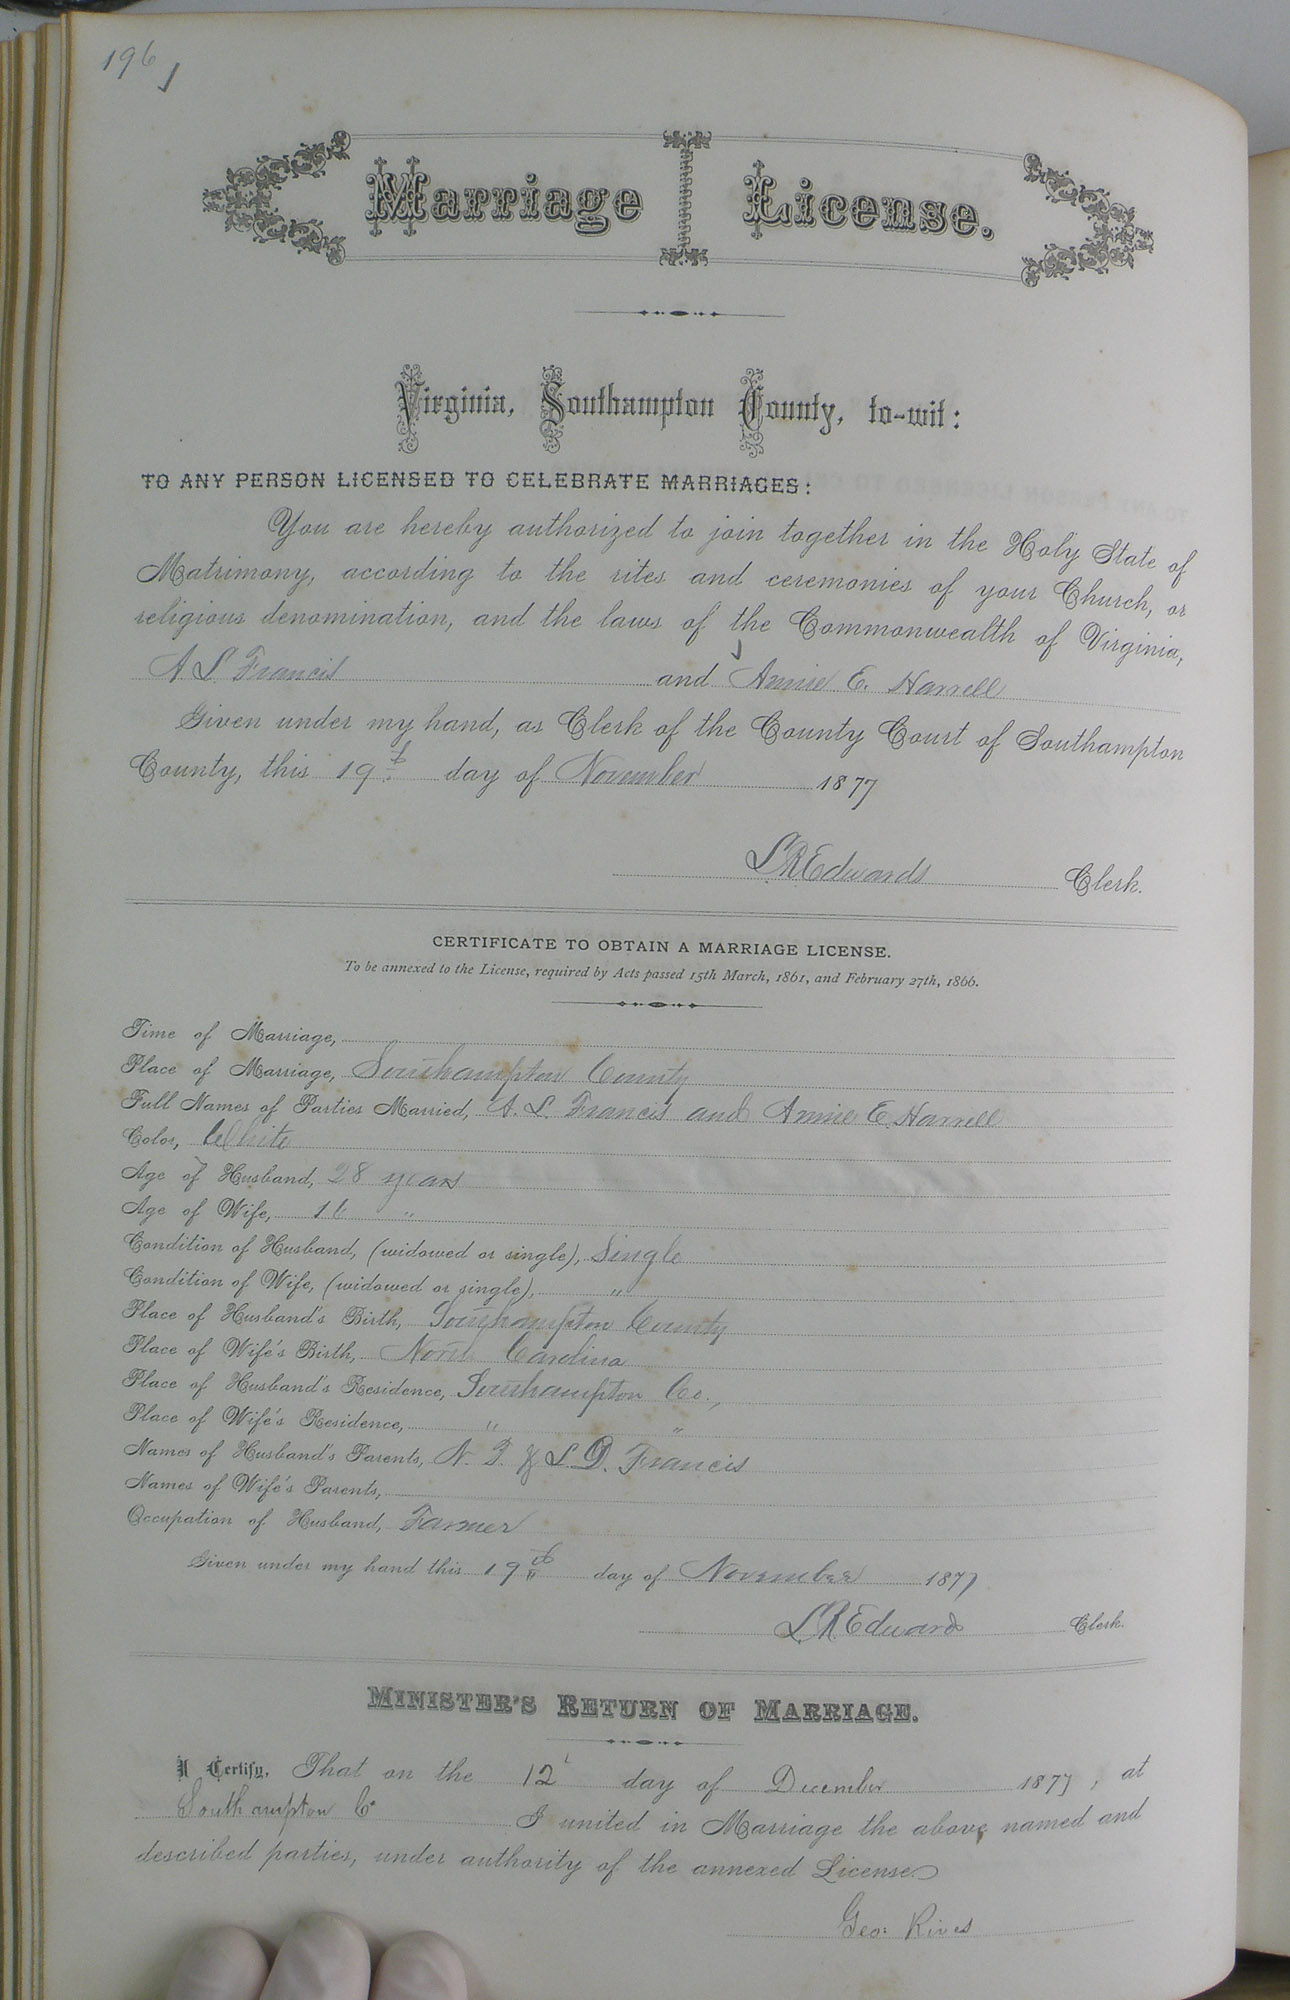 196
Marriage License.
Virginia, Southampton County, to-wit:
TO ANY PERSON LICENSED TO CELEBRATE MARRIAGES:
You are hereby authorized to join together in the Holy State of
Matrimony, according to the rites and ceremonies of your Church, or
religious denomination, and the laws of the Commonwealth of Virginia,
A S Francis and Annie E. Harrell
Given under my hand, as Clerk of the County Court of Southampton
County, this 19th day of November 1877
L R Edwards Clerk.
CERTIFICATE TO OBTAIN A MARRIAGE LICENSE.
To be annexed to the License, required by Acts passed 15th March, 1861, and February 27th, 1866.
Time of Marriage,
Place of Marriage, Southampton County
Full Names of Parties Married, A. S. Francis and Annie E. Harrell
Color, White
Age of Husband, 28 years
Age of Wife, 16 "
Condition of Husband, (widowed or single), Single
Condition of Wife, (widowed or single), "
Place of Husband's Birth, Southampton County
Place of Wife's Birth, North Carolina
Place of Husband's Residence, Southampton Co.,
Place of Wife's Residence, " "
Names of Husband's Parents, N. T. & S. D. Francis
Names of Wife's Parents,
Occupation of Husband, Farmer
Given under my hand this 19th day of November 1877
L R Edwards Clerk.
MINISTER'S RETURN OF MARRIAGE.
I Certify, That on the 12 day of December 1877, at
Southampton Co I united in Marriage the above named and
described parties, under authority of the annexed License.
Geo: Rives